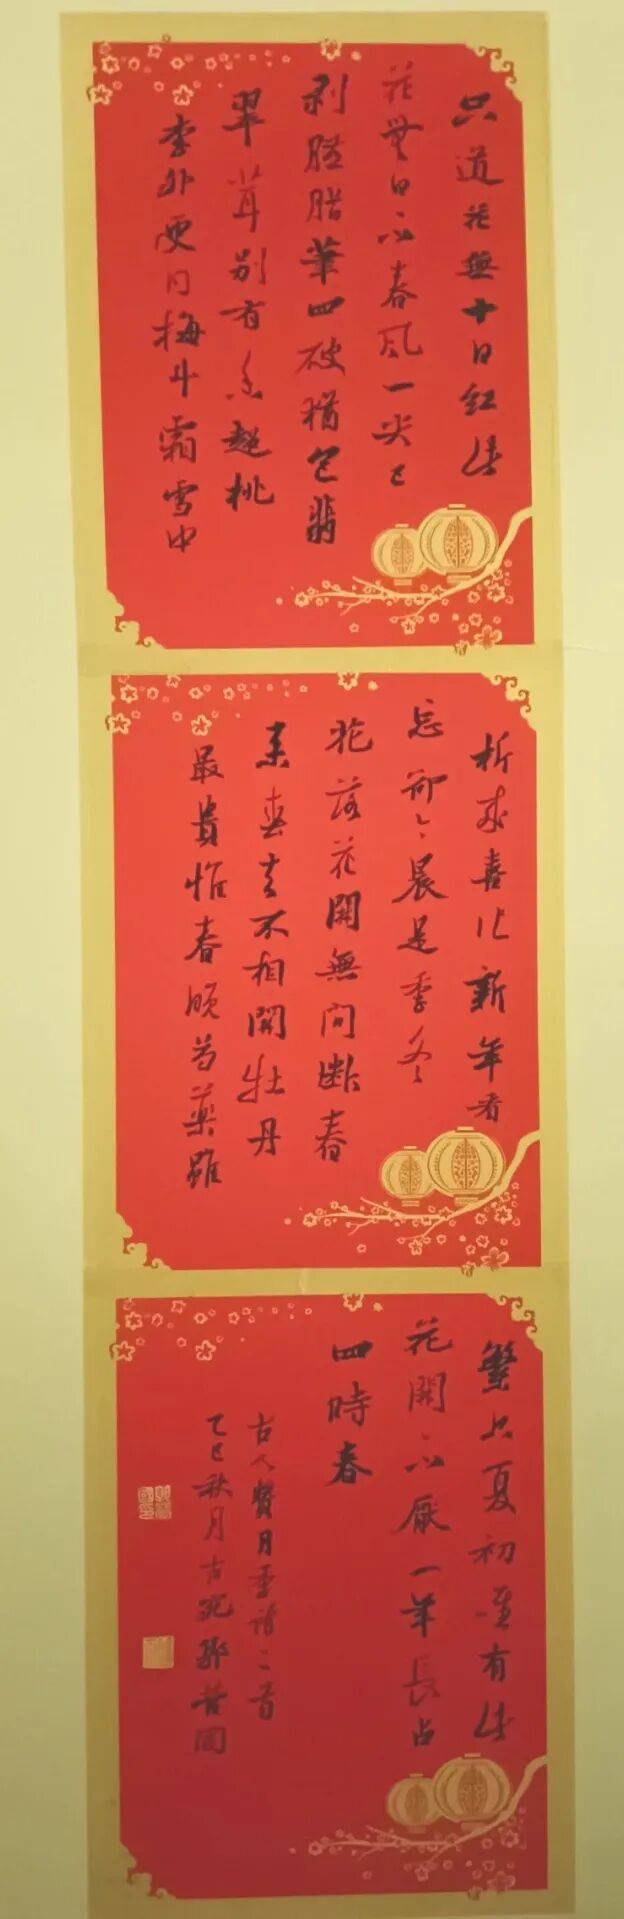 只道花無十日紅此
花無日不春風一尖已
剥胭脂筆四破猶包翡
翠茸别有香超桃
李外更同梅斗霜雪中
折來喜作新年看
忘卻今晨是季冬
花落花開無间斷春
來春去不相関牡丹
最貴惟春晚芍藥雖
繁只夏初唯有此
花開不厭一年長占
四時春
古人贊月季詩二首
乙巳秋月古宛